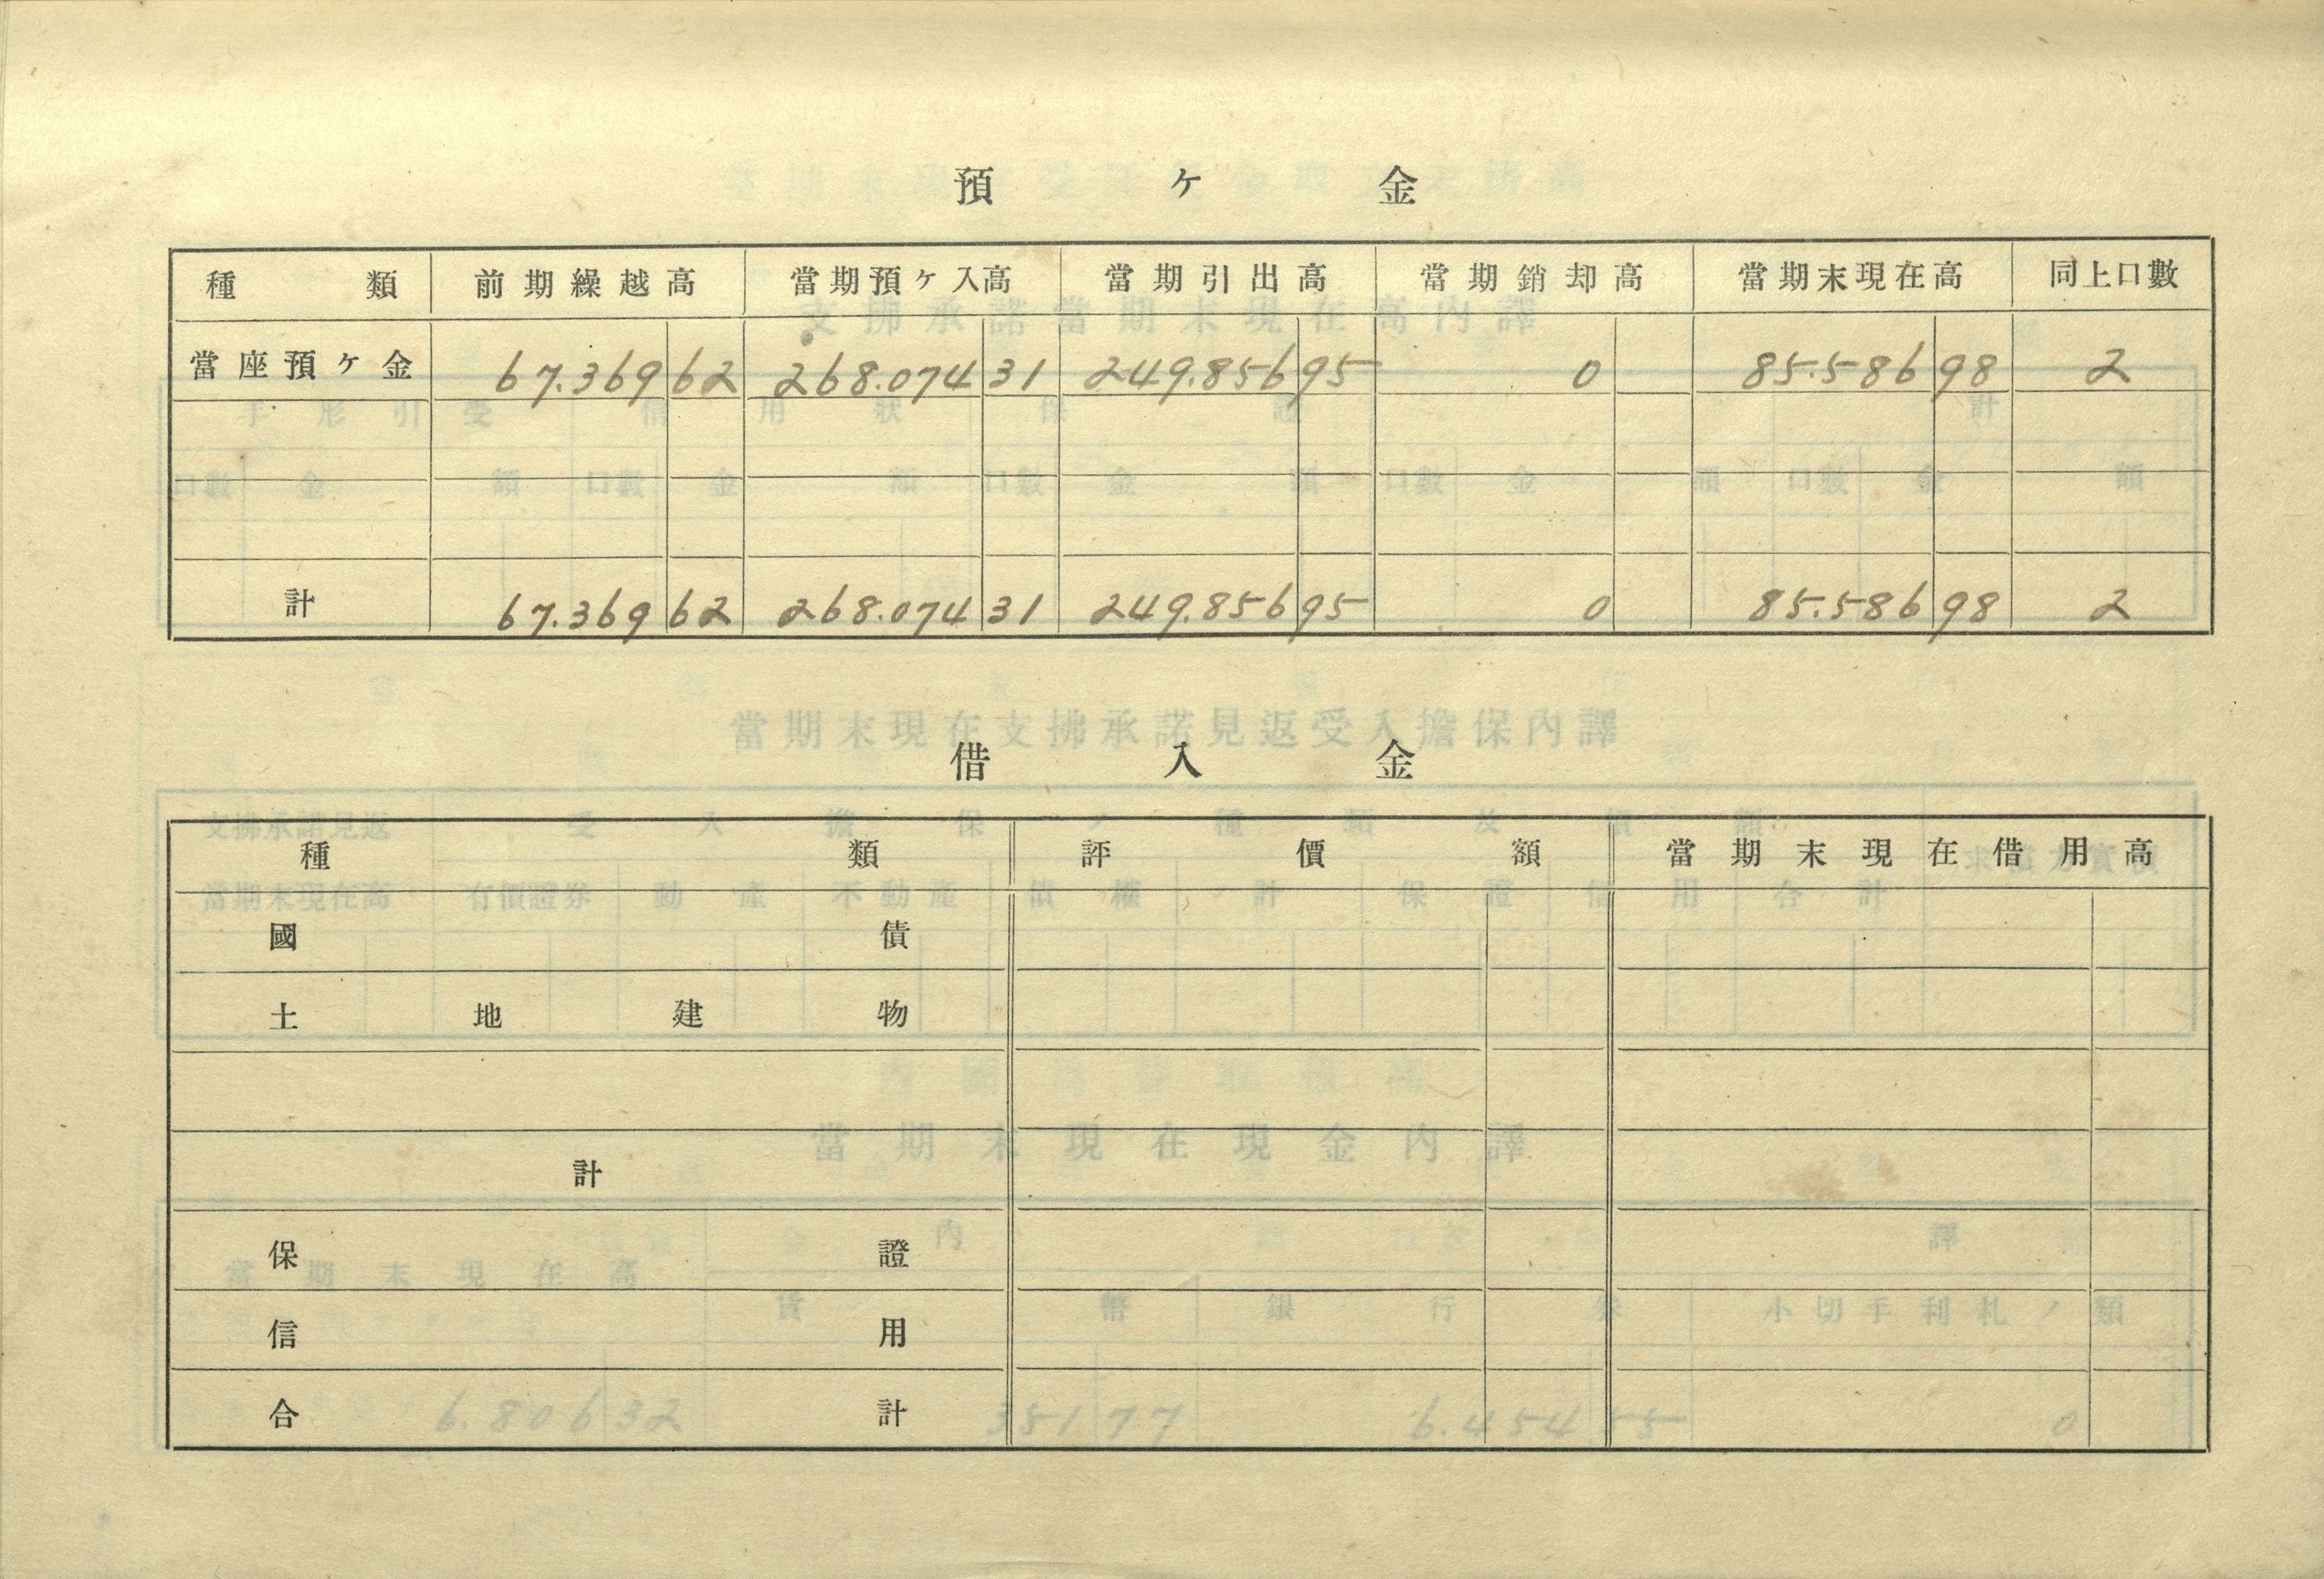 預ケ金
種類 前期繰越高 當期預ケ入高 當期引出高 當期銷却高 當期末現在高 同上口數
當座預ケ金 67.369 62 268.074 31 249.856 95 0 85.586 98 2
計 67.369 62 268.074 31 249.856 95 0 85.586 98 2
借入金
種類 評價額 當期末現在借用高
國債
土地建物
計
保證
信用
合計